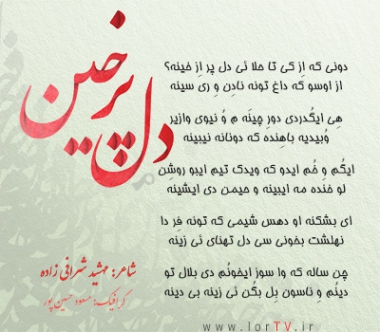 دل پرخین
دونی که اِز کی تا حلا نی دل پر اِز خینه؟
از اوسو که داغ تونه نادِن و ری سینه
هِی ایگُدردی دور چینَه م وُ نیوی وازیر
وُبیدیه باهِنده که دونانه نیبینه
ایگُم و خُم ایدو که ویدک تیم ایبو روشِن
لو خَنده مه ایبینه و حیمن دی ایشینه
ای بشکنه او دهس شیمی که تونه فِر دا
نهلشت بخونی سی دل تهنای نی زینه
چن ساله که وا سوز ایخونُم دی بلال تو
دینُم وِ ناسون بِل بگُن نی زینه بی دینه
شاعر: مهشید شرافی زاده
گرافیک: مسعود حسین پور
www.lorTV.com